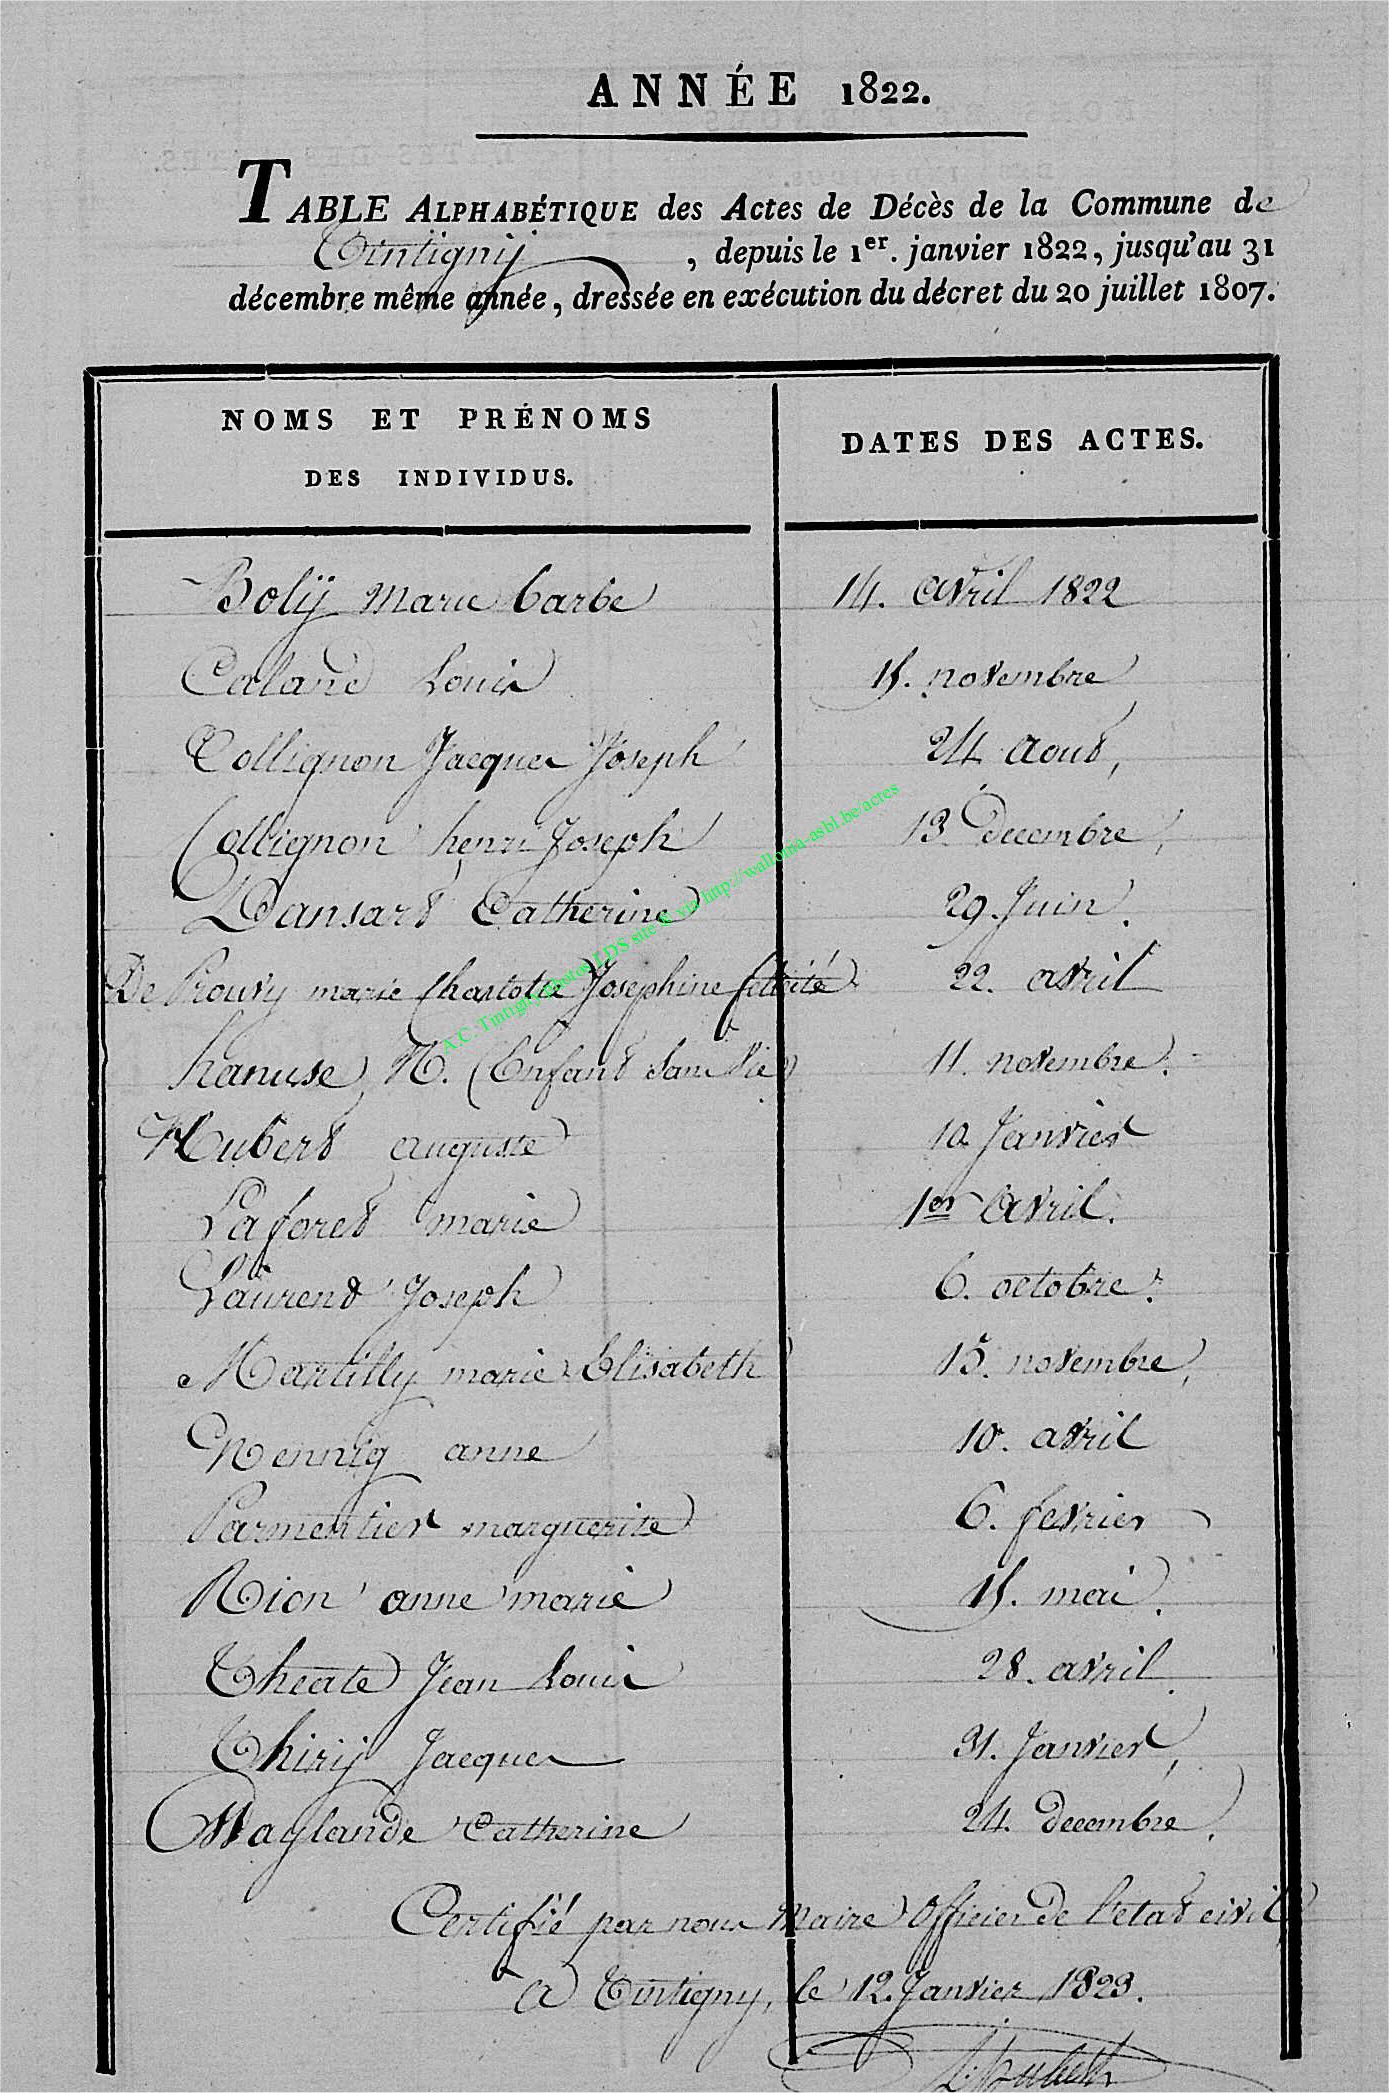 ANNÉE 1822.
TABLE ALPHABÉTIQUE des Actes de Décès de la Commune de
Tintigny, depuis le 1er. janvier 1822, jusqu'au 31
décembre même année, dressée en exécution du décret du 20 juillet 1807.
NOMS ET PRÉNOMS DES INDIVIDUS. DATES DES ACTES.
Bolÿ marie barbe 14. avril 1822
Caland Louis 15. novembre
Collignon Jacques Joseph 24 aout,
Collignon henri Joseph 13. decembre,
Dansart Catherine 29. Juin.
De Prouvy marie Charlotte Josephine felicité 22. avril
hanuse N. (Enfant sans vie) 11. novembre.
Hubert auguste 10 Janvier
Laforet marie 1er avril.
Laurent Joseph 6. octobre.
Martilly marie Elisabeth 15. novembre,
Nennig anne 10. avril
Parmentier marguerite 6. fevrier
Rion anne marie 15. mai.
Theate Jean Louis 28. avril.
Thirÿ Jacques 31. Janvier,
Waylande Catherine 24. decembre.
Certifié par nous Maire Officier de l'etat civil
a Tintigny, le 12. Janvier 1823.
A.C. Tintigny photos LDS site & via http://wallonia-asbl.be/actes